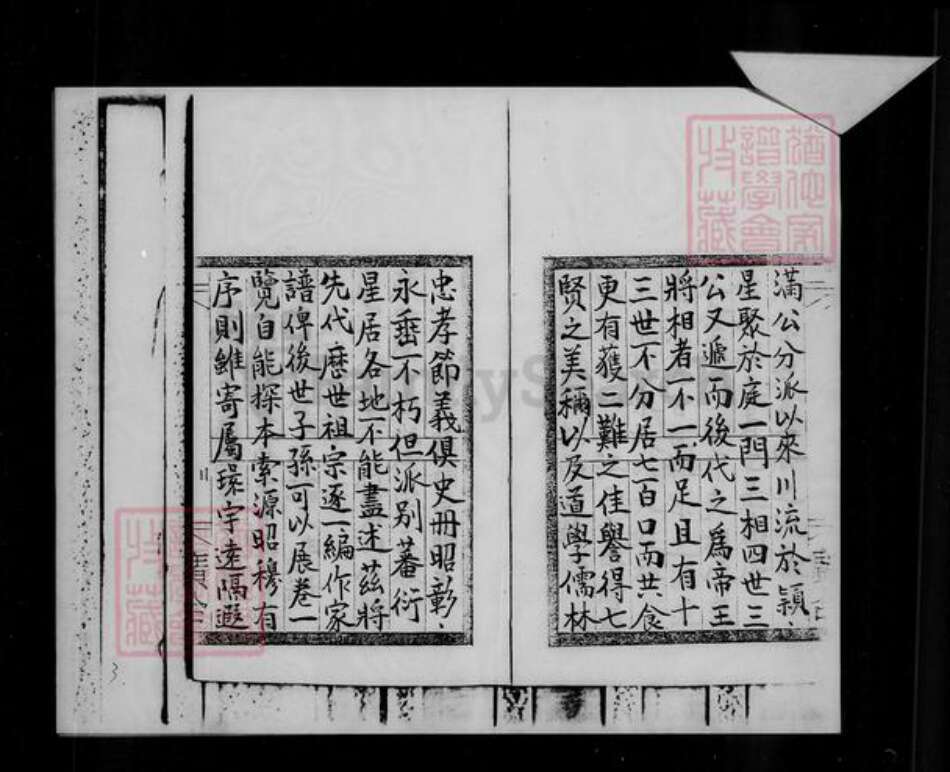 滿公分派以來川流於潁
星聚於庭一門三相四世三
公又遞而後代之爲帝王
將相者不一而足且有十
三世不分居七百口而共食
更有獲二難之佳譽得七
賢之美稱以及道學儒林
忠孝節義俱史冊昭彰
永垂不朽但派别蕃衍
星居各地不能盡述茲將
先代歷世祖宗逐一編作家
譜俾後世子孫可以展卷一
覽自能探本索源昭穆有
序則雖寄屬環宇遠隔遐